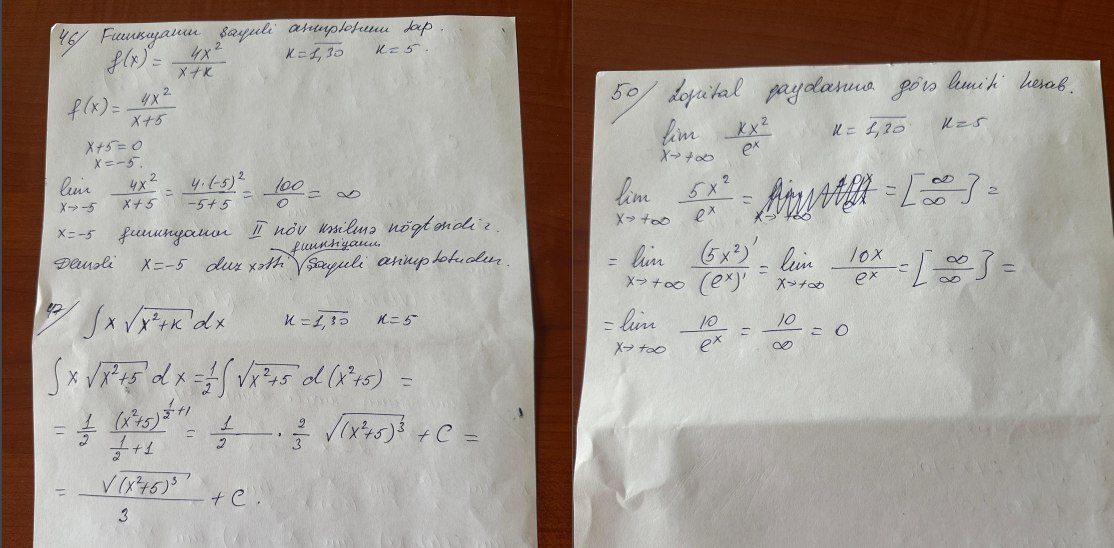 46/ Funksiyanın şaquli asimptotunu tap.
f(x) = 4x²/(x+к) к=1,30 к=5.
f(x) = 4x²/(x+5)
x+5=0
x=-5.
lim x→-5 4x²/(x+5) = 4·(-5)²/(-5+5) = 100/0 = ∞
x=-5 funksiyanın II növ kəsilmə nöqtəsidir.
Deməli x=-5 düz xətti funksiyanın şaquli asimptotudur.
47/ ∫x √(x²+к) dx к=1,30 к=5
∫x √(x²+5) dx = 1/2 ∫√(x²+5) d(x²+5) =
= 1/2 (x²+5)^(1/2+1)/(1/2+1) = 1/2 · 2/3 √(x²+5)³ + C =
= √(x²+5)³/3 + C.
50/ Lopital qaydasına görə limiti hesab.
lim x→+∞ кx²/eˣ к=1,30 к=5
lim x→+∞ 5x²/eˣ = = [∞/∞} =
= lim x→+∞ (5x²)'/(eˣ)' = lim x→+∞ 10x/eˣ = [∞/∞} =
= lim x→+∞ 10/eˣ = 10/∞ = 0